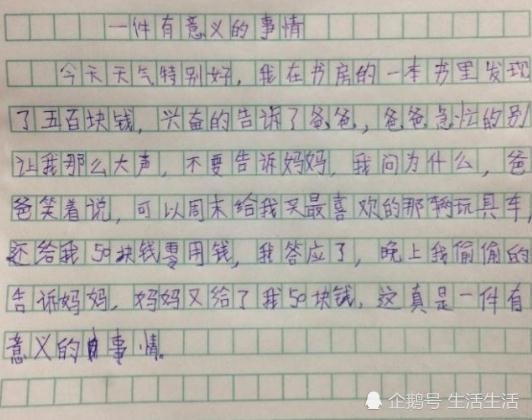 一件有意义的事情
今天天气特别好，我在书房的一本书里发现
了五百块钱，兴奋的告诉了爸爸，爸爸急忙的别
让我那么大声，不要告诉妈妈，我问为什么，爸
爸笑着说，可以周末给我买最喜欢的那辆玩具车，
还给我50块钱零用钱，我答应了，晚上我偷偷的
告诉妈妈，妈妈又给了我50块钱，这真是一件有
意义的事情。
企鹅号 生活生活